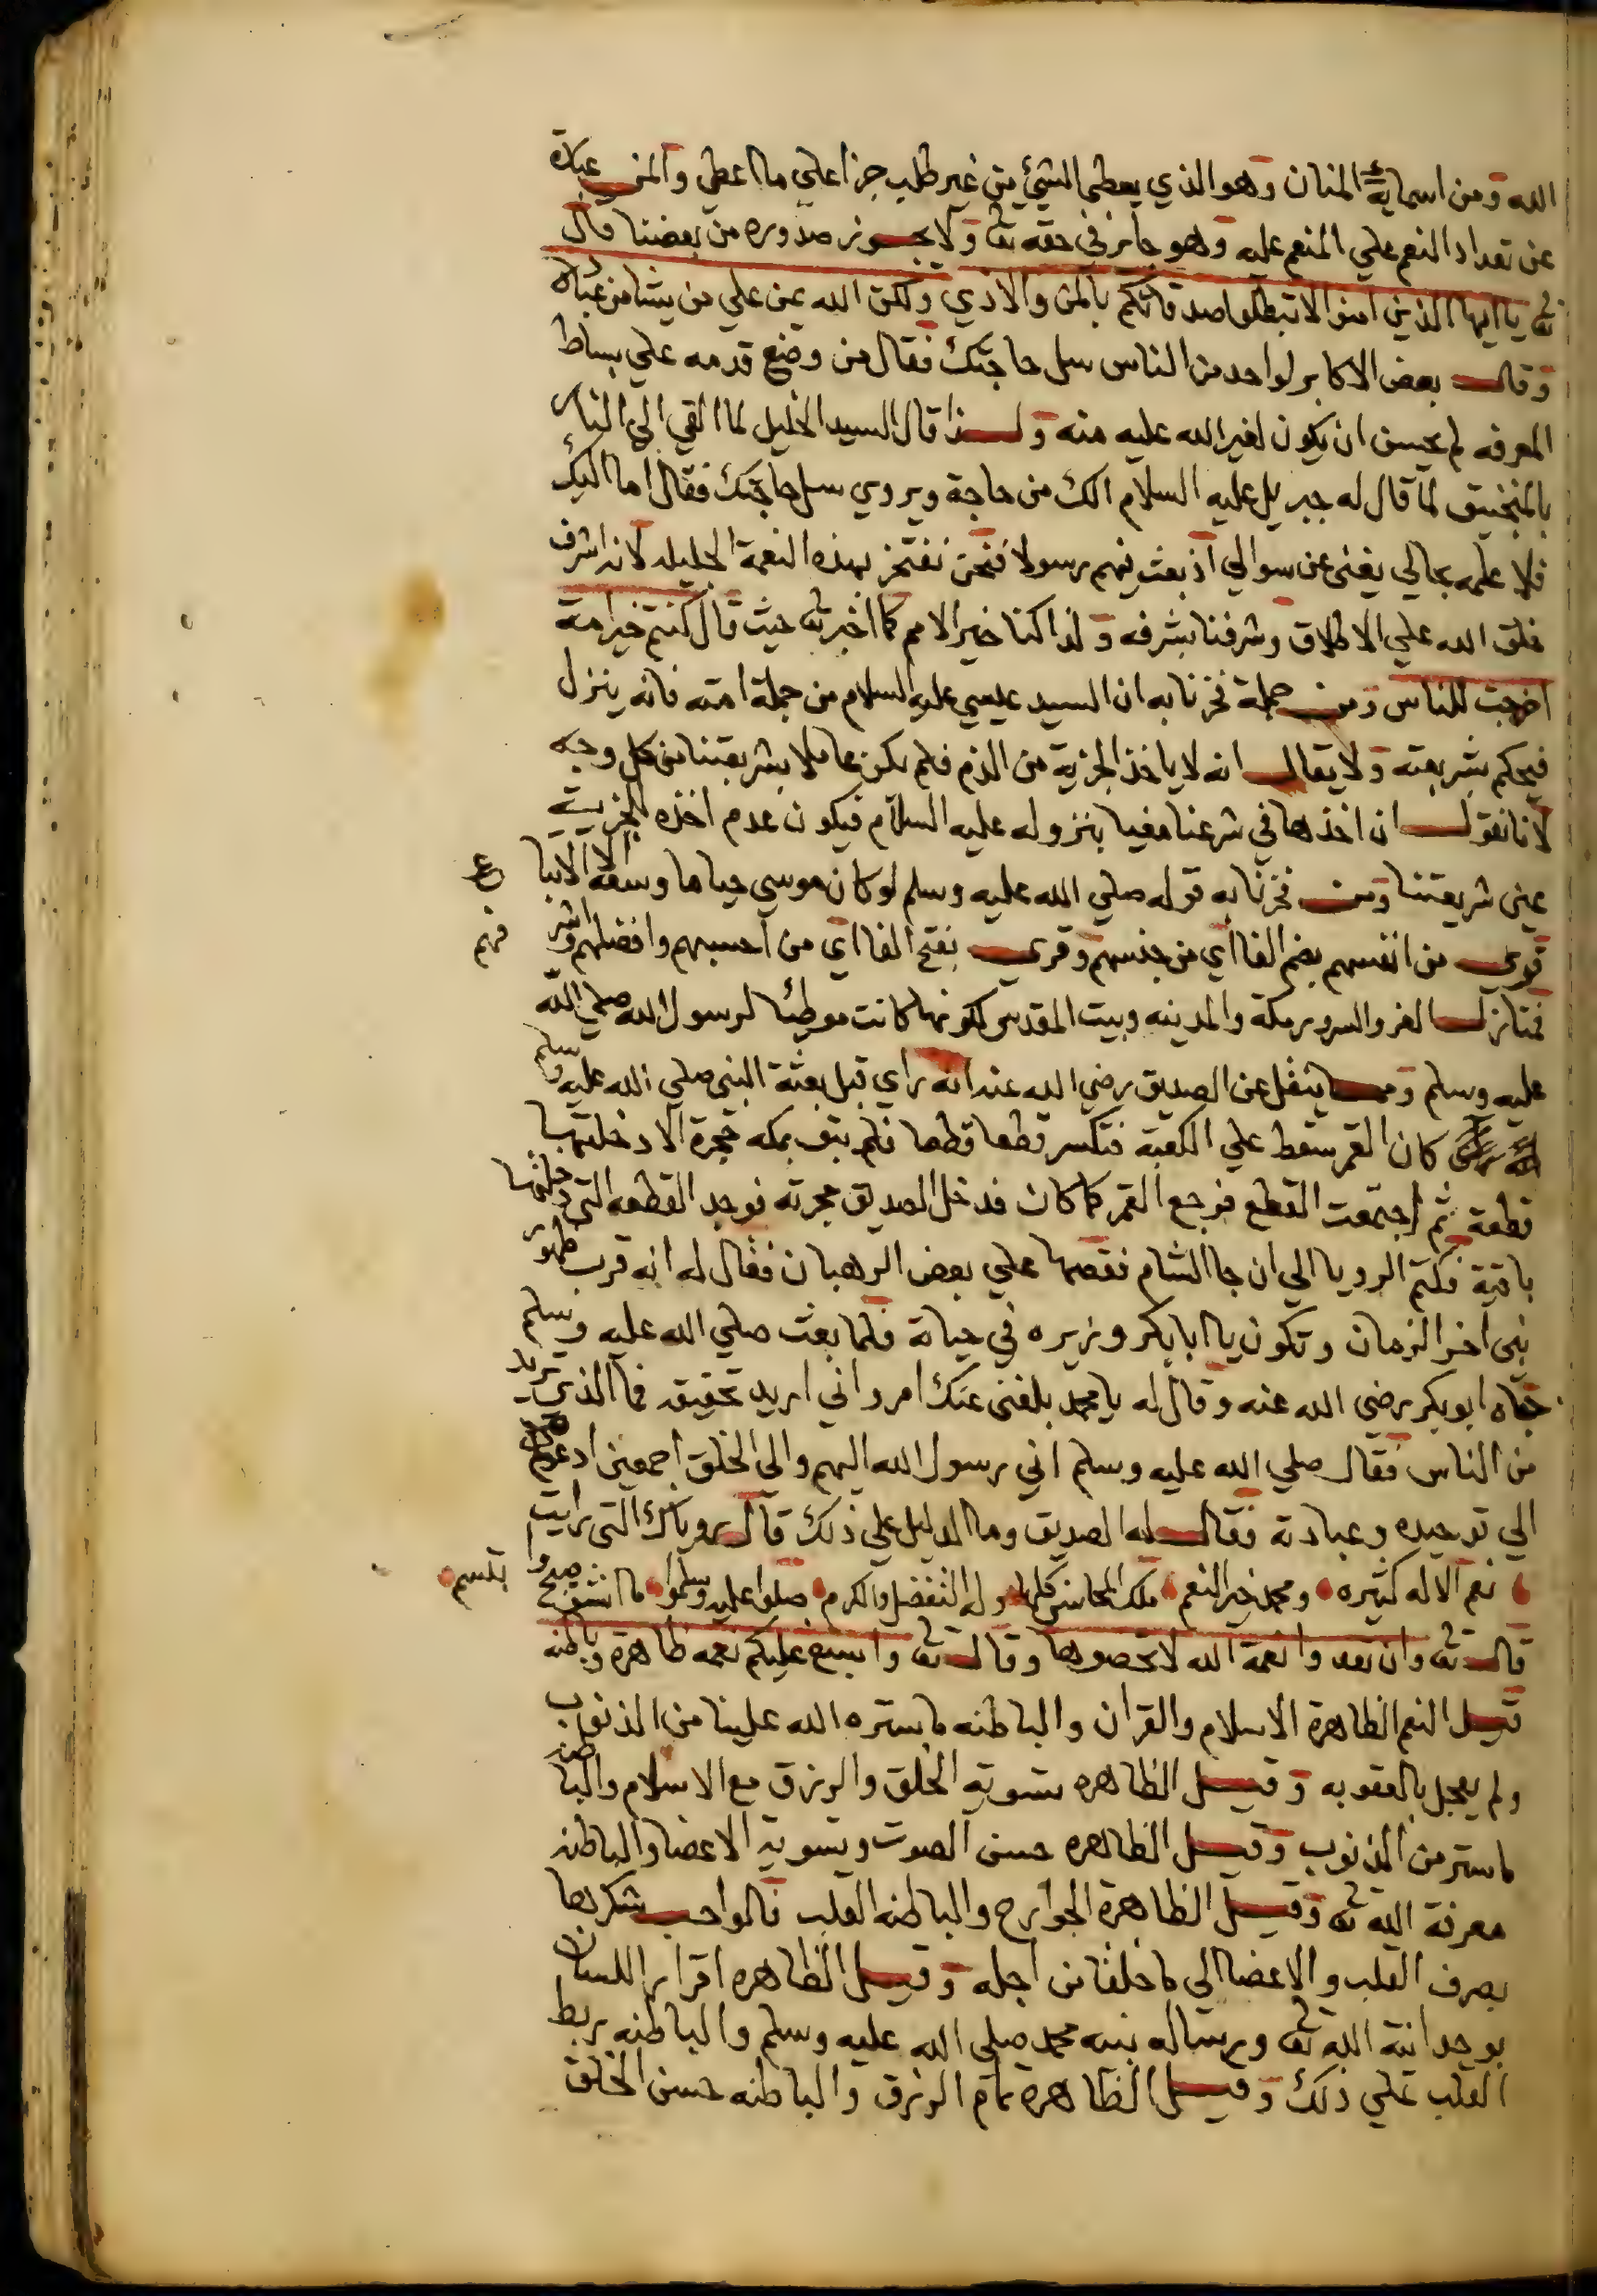 الله ومن اسمايه المنان وهو الذي يعطي الشيء من غير طلب جزا علي ما اعطي والمن عبارة
عن تعداد النعم علي المنعم عليه وهو جايز في حقه تعا ولا يجوز صدوره من بعضنا قال
تعا يا ايها الذين امنوا لا تبطلوا صدقاتكم بالمن والاذي ولكن الله يمن علي من يشا من عباده
وقال بعض الاكابر لواحد من الناس سل حاجتك فقال من وضع قدمه علي بساط
المعرفه لم يحسن ان يكون لغير الله عليه منه ولهذا قال السيد الخليل لما القي الي النار
بالمنجنيق لما قال له جبريل عليه السلام الك من حاجة ويروي سل حاجتك فقال اما اليك
فلا علمه بحالي يغني عن سوالي اذ بعث فيهم رسولا فنحن نفتخر بهذه النعمة الجليله لانه اشرف
خلق الله علي الاطلاق وشرفنا بشرفه ولذا كنا خير الامم كما اخبر تعا حيث قال كنتم خير امة
اخرجت للناس ومن جملة فخرنا به ان السيد عيسي عليه السلام من جملة امته فانه ينزل
فيحكم بشريعته ولا يقال انه لا ياخذ الجزية من الذم فلم يكن عاملا بشريعتنا من كل وجه
لانا نقول ان اخذها في شرعنا مغيا بنزوله عليه السلام فيكون عدم اخذه الجزية
عين شريعتنا ومن فخرنا به قوله صلي الله عليه وسلم لو كان موسي حيا ما وسعه الا اتباعي
قوي من انفسهم بضم الفا اي من جنسهم وقري بفتح الفا اي من احسبهم وافضلهم واشرفهم
فمنازل العز والسرور مكة والمدينه وبيت المقدس لكونها كانت موطئا لرسول الله صلي الله
عليه وسلم ومما ينقل عن الصديق رضي الله عنه انه راي قبل بعثة النبي صلي الله عليه وسلم
كان القمر سقط علي الكعبة فتكسر قطعا قطعا فلم يبق بمكه حجرة الا دخلتها
قطعة ثم اجتمعت القطع فرجع القمر كما كان فدخل الصديق حجرته فوجد القطعه التي دخلتها
باقية فكتم الرويا الي ان جا الشام فقصها علي بعض الرهبان فقال له انه قرب ظهور
نبي اخر الزمان وتكون يا ابا بكر وزيره في حياته فلما بعث صلي الله عليه وسلم
جاه ابو بكر رضي الله عنه وقال له يا محمد بلغني عنك امر واني اريد تحقيقه فما الذي تريد
من الناس فقال صلي الله عليه وسلم اني رسول الله اليهم والي الخلق اجمعين ادعوهم
الي توحيده وعبادته فقال له الصديق وما الدليل علي ذلك قال روياك التي رايت
نعم الاله كثيره ومحمد خير النعم ملك المحاسن كلها وله التفضل والكرم صلوا عليه وسلموا ما انشق صبح وابتسم
قال تعا وان تعدوا نعمة الله لا تحصوها وقال تعا واسبغ عليكم نعمه ظاهرة وباطنه
قيل النعم الظاهرة الاسلام والقران والباطنه ما ستره الله علينا من الذنوب
ولم يعجل بالعقوبه وقيل الظاهره تسوية الخلق والرزق مع الاسلام والباطنه
ما ستر من الذنوب وقيل الظاهره حسن الصوت وتسوية الاعضا والباطنه
معرفة الله تعا وقيل الظاهرة الجوارح والباطنه القلب فالواجب شكرها
بصرف القلب والاعضا الي ما خلقا من اجله وقيل الظاهره اقرار اللسان
بوحدانية الله تعا ورساله نبيه محمد صلي الله عليه وسلم والباطنه ربط
القلب علي ذلك وقيل الظاهرة تمام الرزق والباطنه حسن الخلق